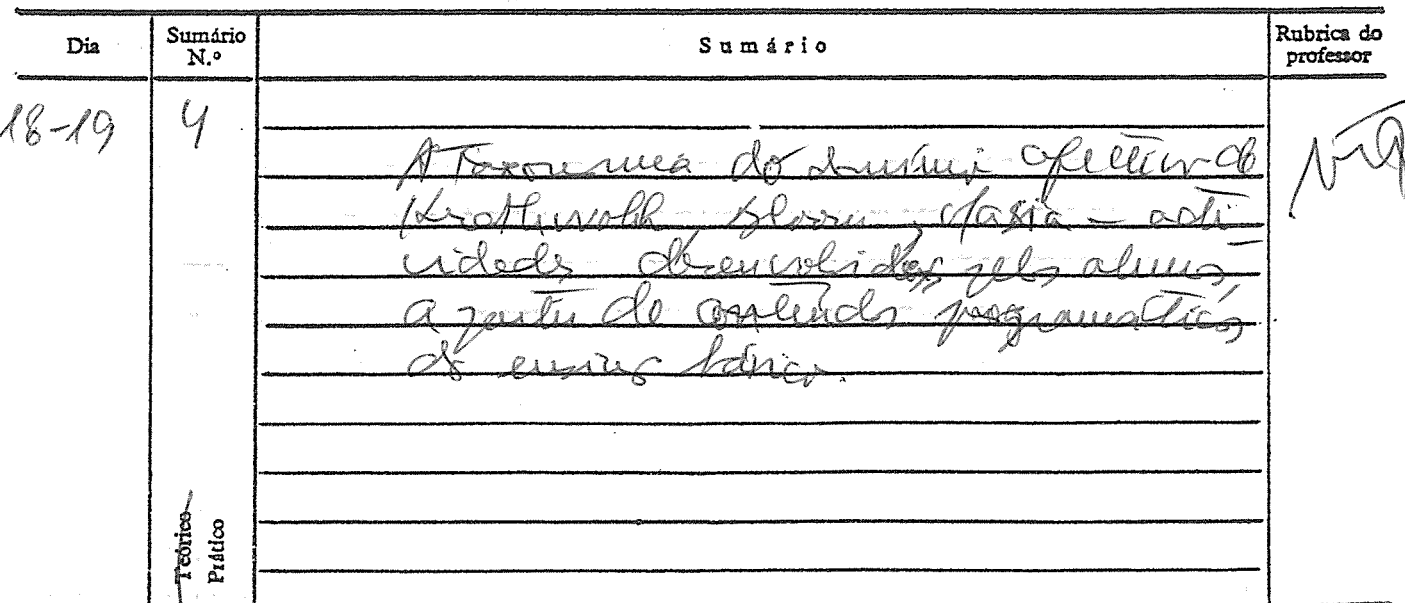 Dia
Sumário N.º
Sumário
Rubrica do professor
18-19
4
A Taxonomia do domínio afectivo de
Krathwohl, Bloom, Masia - acti
vidades desenvolvidas pelos alunos,
a partir de conteúdos programáticos
do ensino básico.
Teórico
Prático